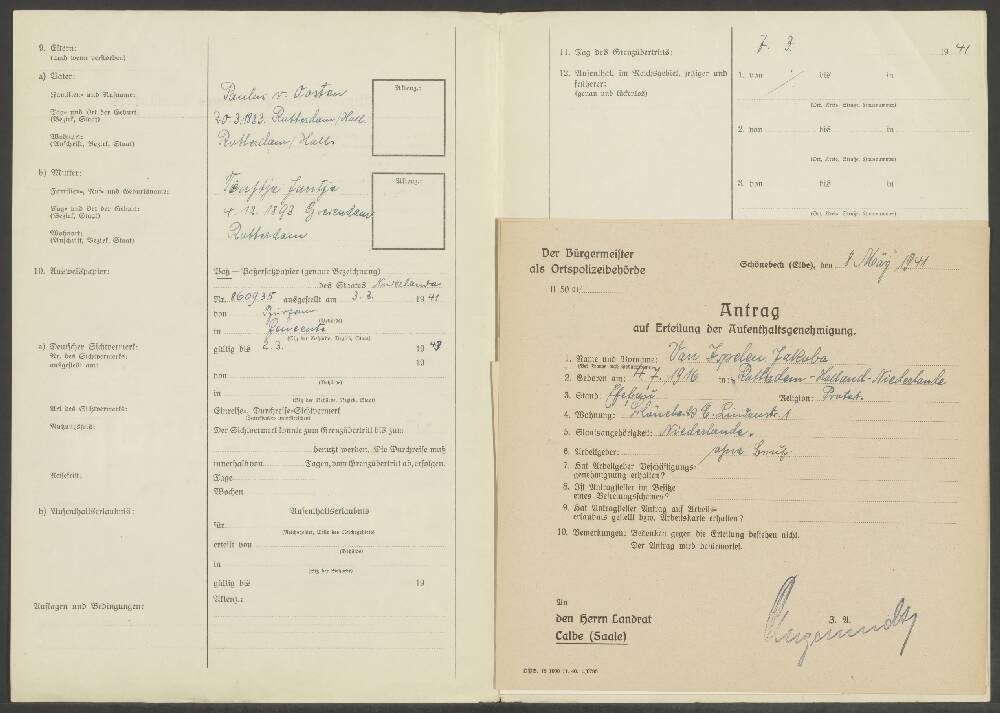 9. Eltern:
(auch wenn verstorben)
a) Vater:
Familien- und Rufname:
Paulus v. Oosten
Aktenz.:
Tag- und Ort der Geburt:
(Bezirk, Staat)
20.3.1883. Rotterdam/Holl.
Wohnort:
(Anschrift, Bezirk, Staat)
Rotterdam/Holl.
b) Mutter:
Aktenz.:
Familien-, Ruf- und Geburtsname:
Jantje
Tag- und Ort der Geburt:
(Bezirk, Staat)
4.12.1893
Wohnort:
(Anschrift, Bezirk, Staat)
Rotterdam
10. Ausweispapier:
Paß — Paßersatzpapier (genaue Bezeichnung)
des Staates Niederlande
Nr. 860935 ausgestellt am 3.2. 1941
von
(Behörde)
in Gemeente
(Sitz der Behörde, Bezirk, Staat)
gültig bis 2.3. 1943
a) Deutscher Sichtvermerk:
Nr. des Sichtvermerks:
ausgestellt am:
19
von
(Behörde)
in
(Sitz der Behörde, Bezirk, Staat)
Art des Sichtvermerks:
Einreise-, Durchreise-Sichtvermerk
Nutzungsfrist:
Der Sichtvermerk konnte zum Grenzübertritt bis zum
benutzt werden. Die Durchreise muß
innerhalb von Tagen, vom Grenzübertritt ab, erfolgen.
Reisefrist:
Tage
Wochen
b) Aufenthaltserlaubnis:
Aufenthaltserlaubnis
für
(Reichsgebiet, Teile des Reichsgebiets)
erteilt von
(Behörde)
in
(Sitz der Behörde)
gültig bis 19
Aktenz.:
Auflagen und Bedingungen:
11. Tag des Grenzübertritts:
7. 3. 1941
12. Aufenthal. im Reichsgebiet, jetziger und
früherer:
(genau und lückenlos)
1. von bis in
(Ort, Kreis, Straße, Hausnummer)
2. von bis in
(Ort, Kreis, Straße, Hausnummer)
3. von bis in
(Ort, Kreis, Straße, Hausnummer)
Der Bürgermeister
als Ortspolizeibehörde
Schönebeck (Elbe), den 8 März 1941
II 50 01/
Antrag
auf Erteilung der Aufenthaltsgenehmigung.
1. Name und Vorname: Van Jakoba
2. Geboren am: 4.7.1916 in: Rotterdam-Holland-Niederlande
3. Stand: Ehefrau Religion: Protest.
4. Wohnung: Schönebeck E. Lindenstr. 1
5. Staatsangehörigkeit: Niederlande.
6. Arbeitgeber: ohne Beruf
7. Hat Arbeitgeber Beschäftigungs-
genehmigung erhalten?
8. Ist Antragsteller im Besitze
eines Befreiungsscheines?
9. Hat Antragsteller Antrag auf Arbeits-
erlaubnis gestellt bzw. Arbeitskarte erhalten?
10. Bemerkungen: Bedenken gegen die Erteilung bestehen nicht.
Der Antrag wird befürwortet.
An
den Herrn Landrat
Calbe (Saale)
J. A.